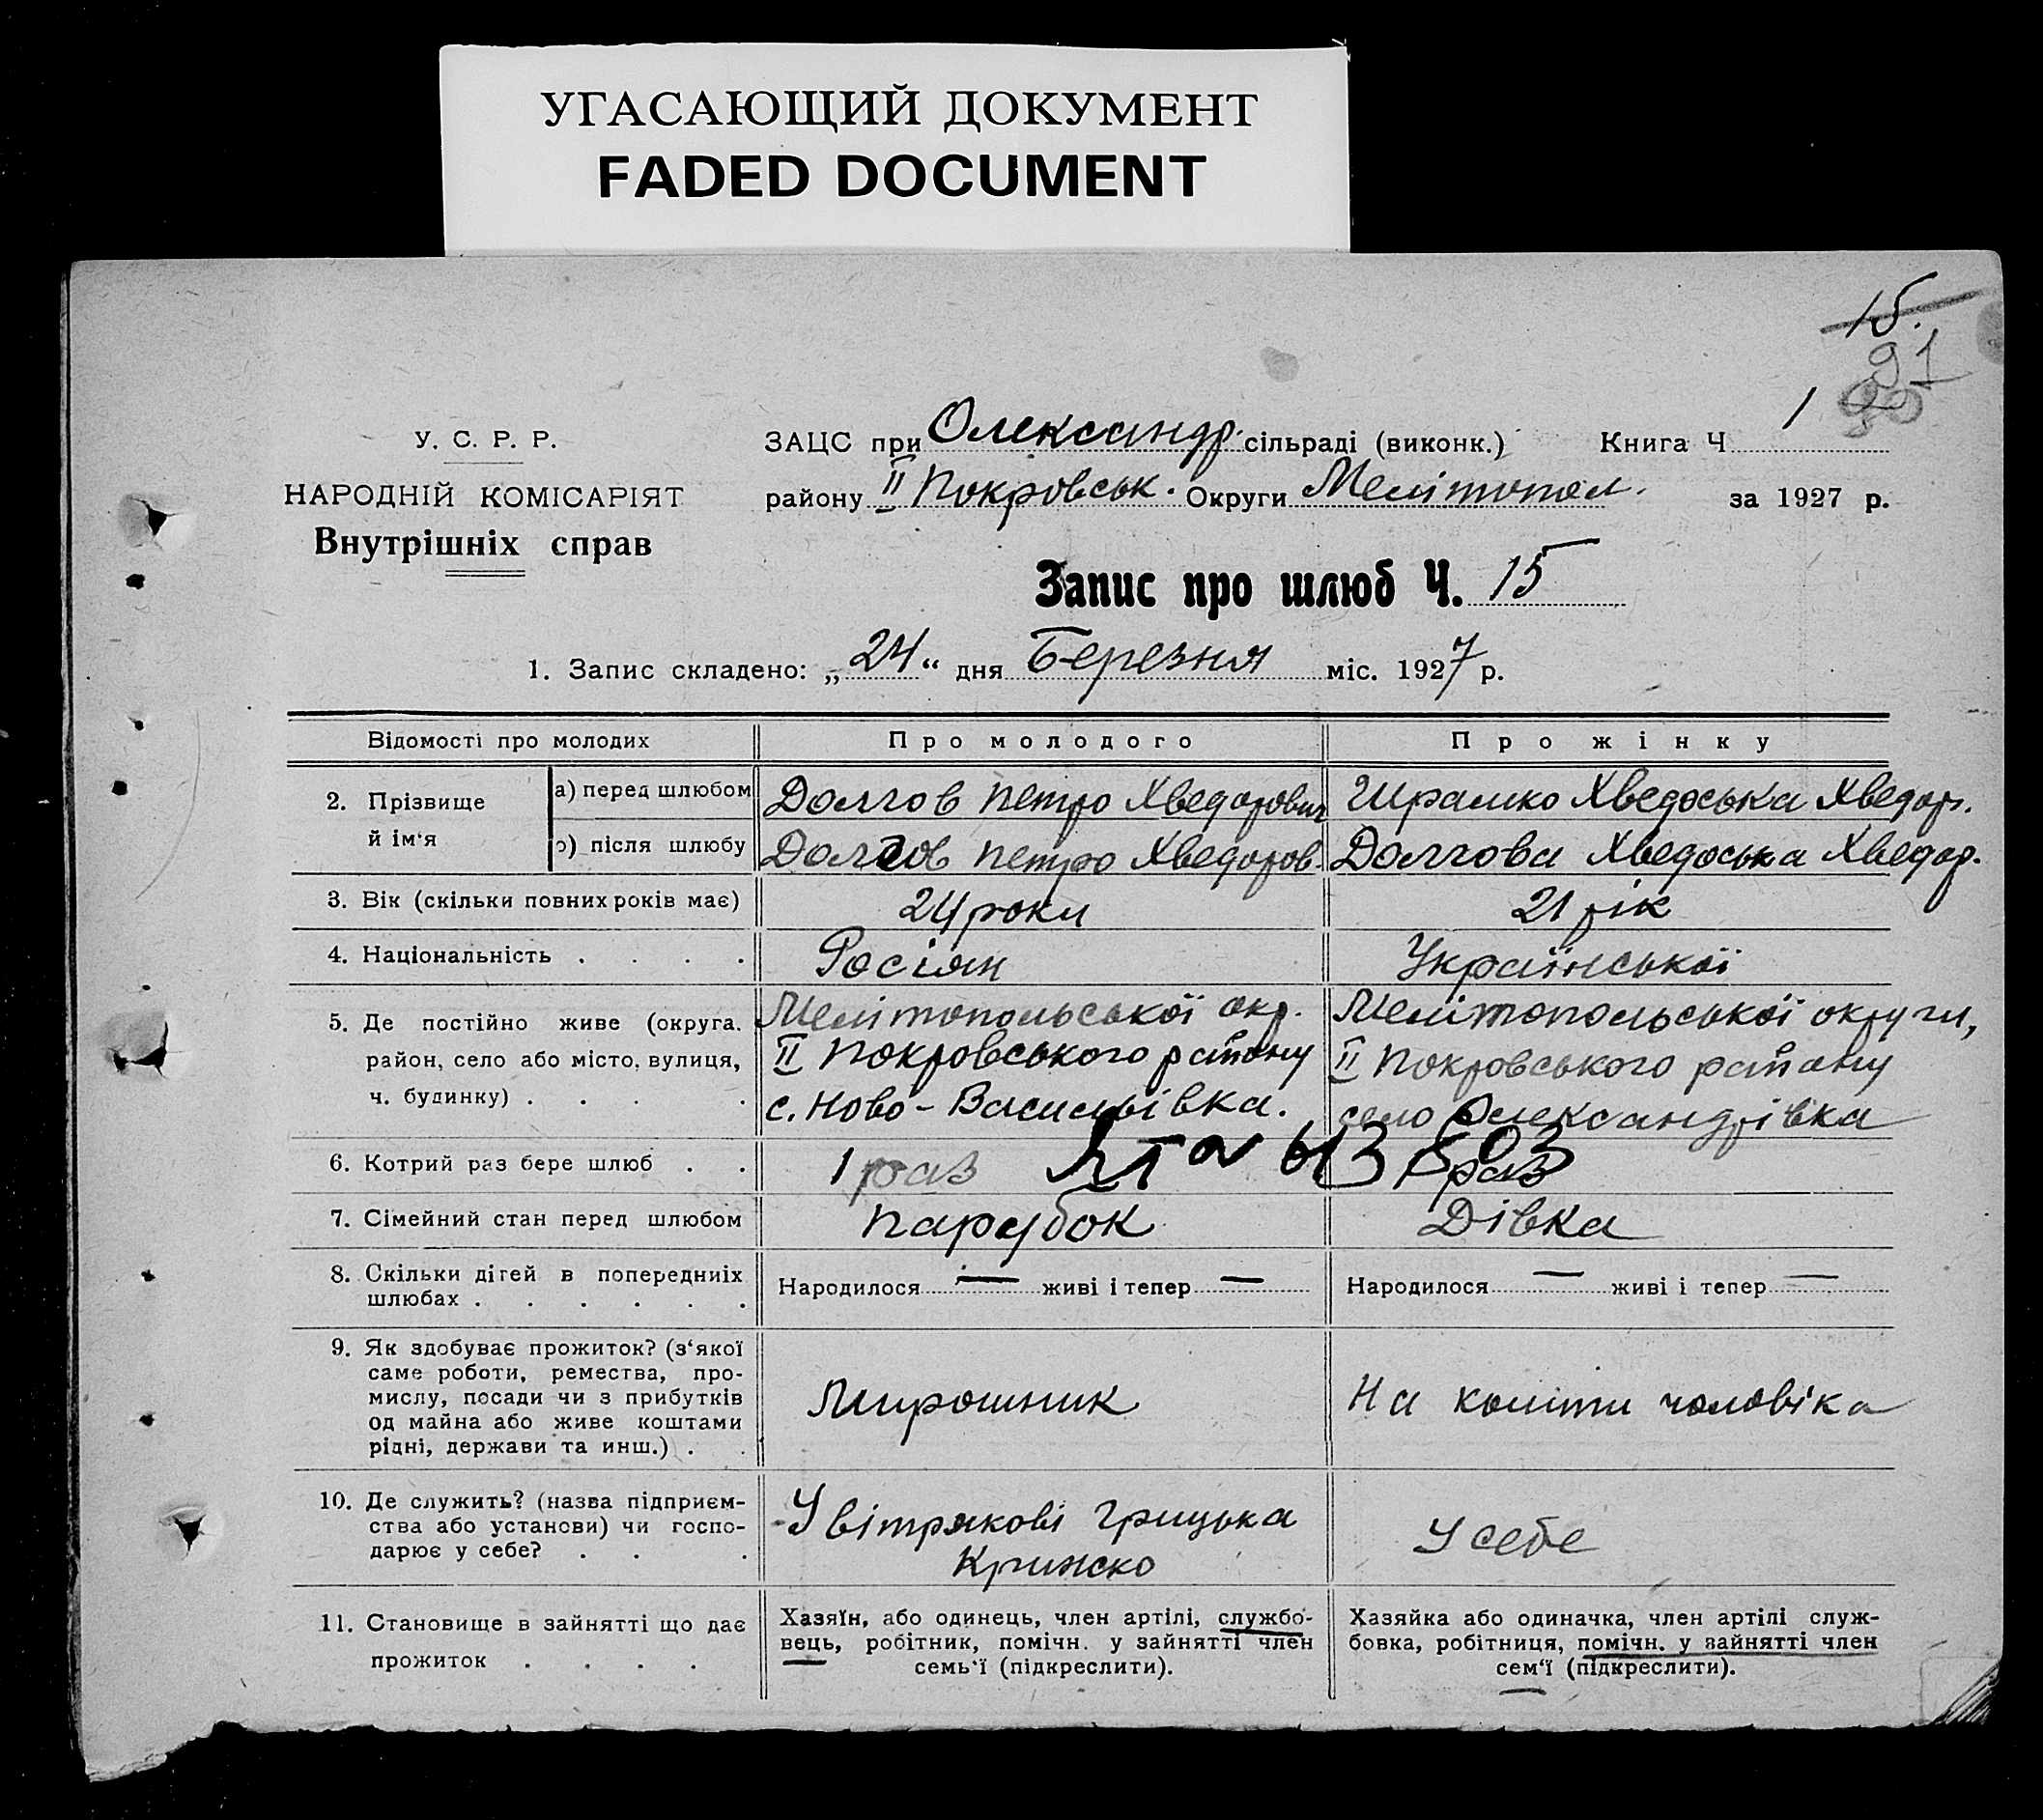 УГАСАЮЩИЙ ДОКУМЕНТ
FADED DOCUMENT
15.
91
90
У. С. Р. Р.
НАРОДНІЙ КОМІСАРІЯТ
Внутрішніх справ
ЗАЦС при Олександр. сільраді (виконк.) Книга Ч. 1
району II Покровськ. Округи Мелітопол. за 1927 р.
Запис про шлюб Ч. 15
1. Запис складено: „24“ дня Березня міс. 1927 р.
Відомості про молодих Про молодого Про жінку
2. Прізвище й ім‘я
а) перед шлюбом Долгов Петро Хведорович Шрамко Хведоська Хведор.
б) після шлюбу Долгов Петро Хведоров. Долгова Хведоська Хведор.
3. Вік (скільки повних років має) 24 роки 21 рік
4. Національність . . . . Росіян Української
5. Де постійно живе (округа, Мелітопольської окр. Мелітопольської округи,
район, село або місто, вулиця, II Покровського району II Покровського району
ч. будинку) . . . . с. Ново-Васильівка. село Олександрівка
6. Котрий раз бере шлюб . . 1 раз 1 раз
7. Сімейний стан перед шлюбом Парубок Дівка
8. Скільки дітей в попередниіх Народилося — живі і тепер — Народилося — живі і тепер —
шлюбах . . . . . .
9. Як здобуває прожиток? (з‘якої
саме роботи, ремества, про-
мислу, посади чи з прибутків Мирошник На кошти чоловіка
од майна або живе коштами
рідні, держави та инш.) . .
10. Де служить? (назва підприєм- У вітрякові Грицька
ства або установи) чи госпо- У себе
дарює у себе? . . .
11. Становище в зайнятті що дає Хазяїн, або одинець, член артілі, службо- Хазяйка або одиначка, член артілі служ-
прожиток . . . . вець, робітник, помічн. у зайнятті член бовка, робітниця, помічн. у зайнятті член
семь‘ї (підкреслити). сем‘ї (підкреслити).